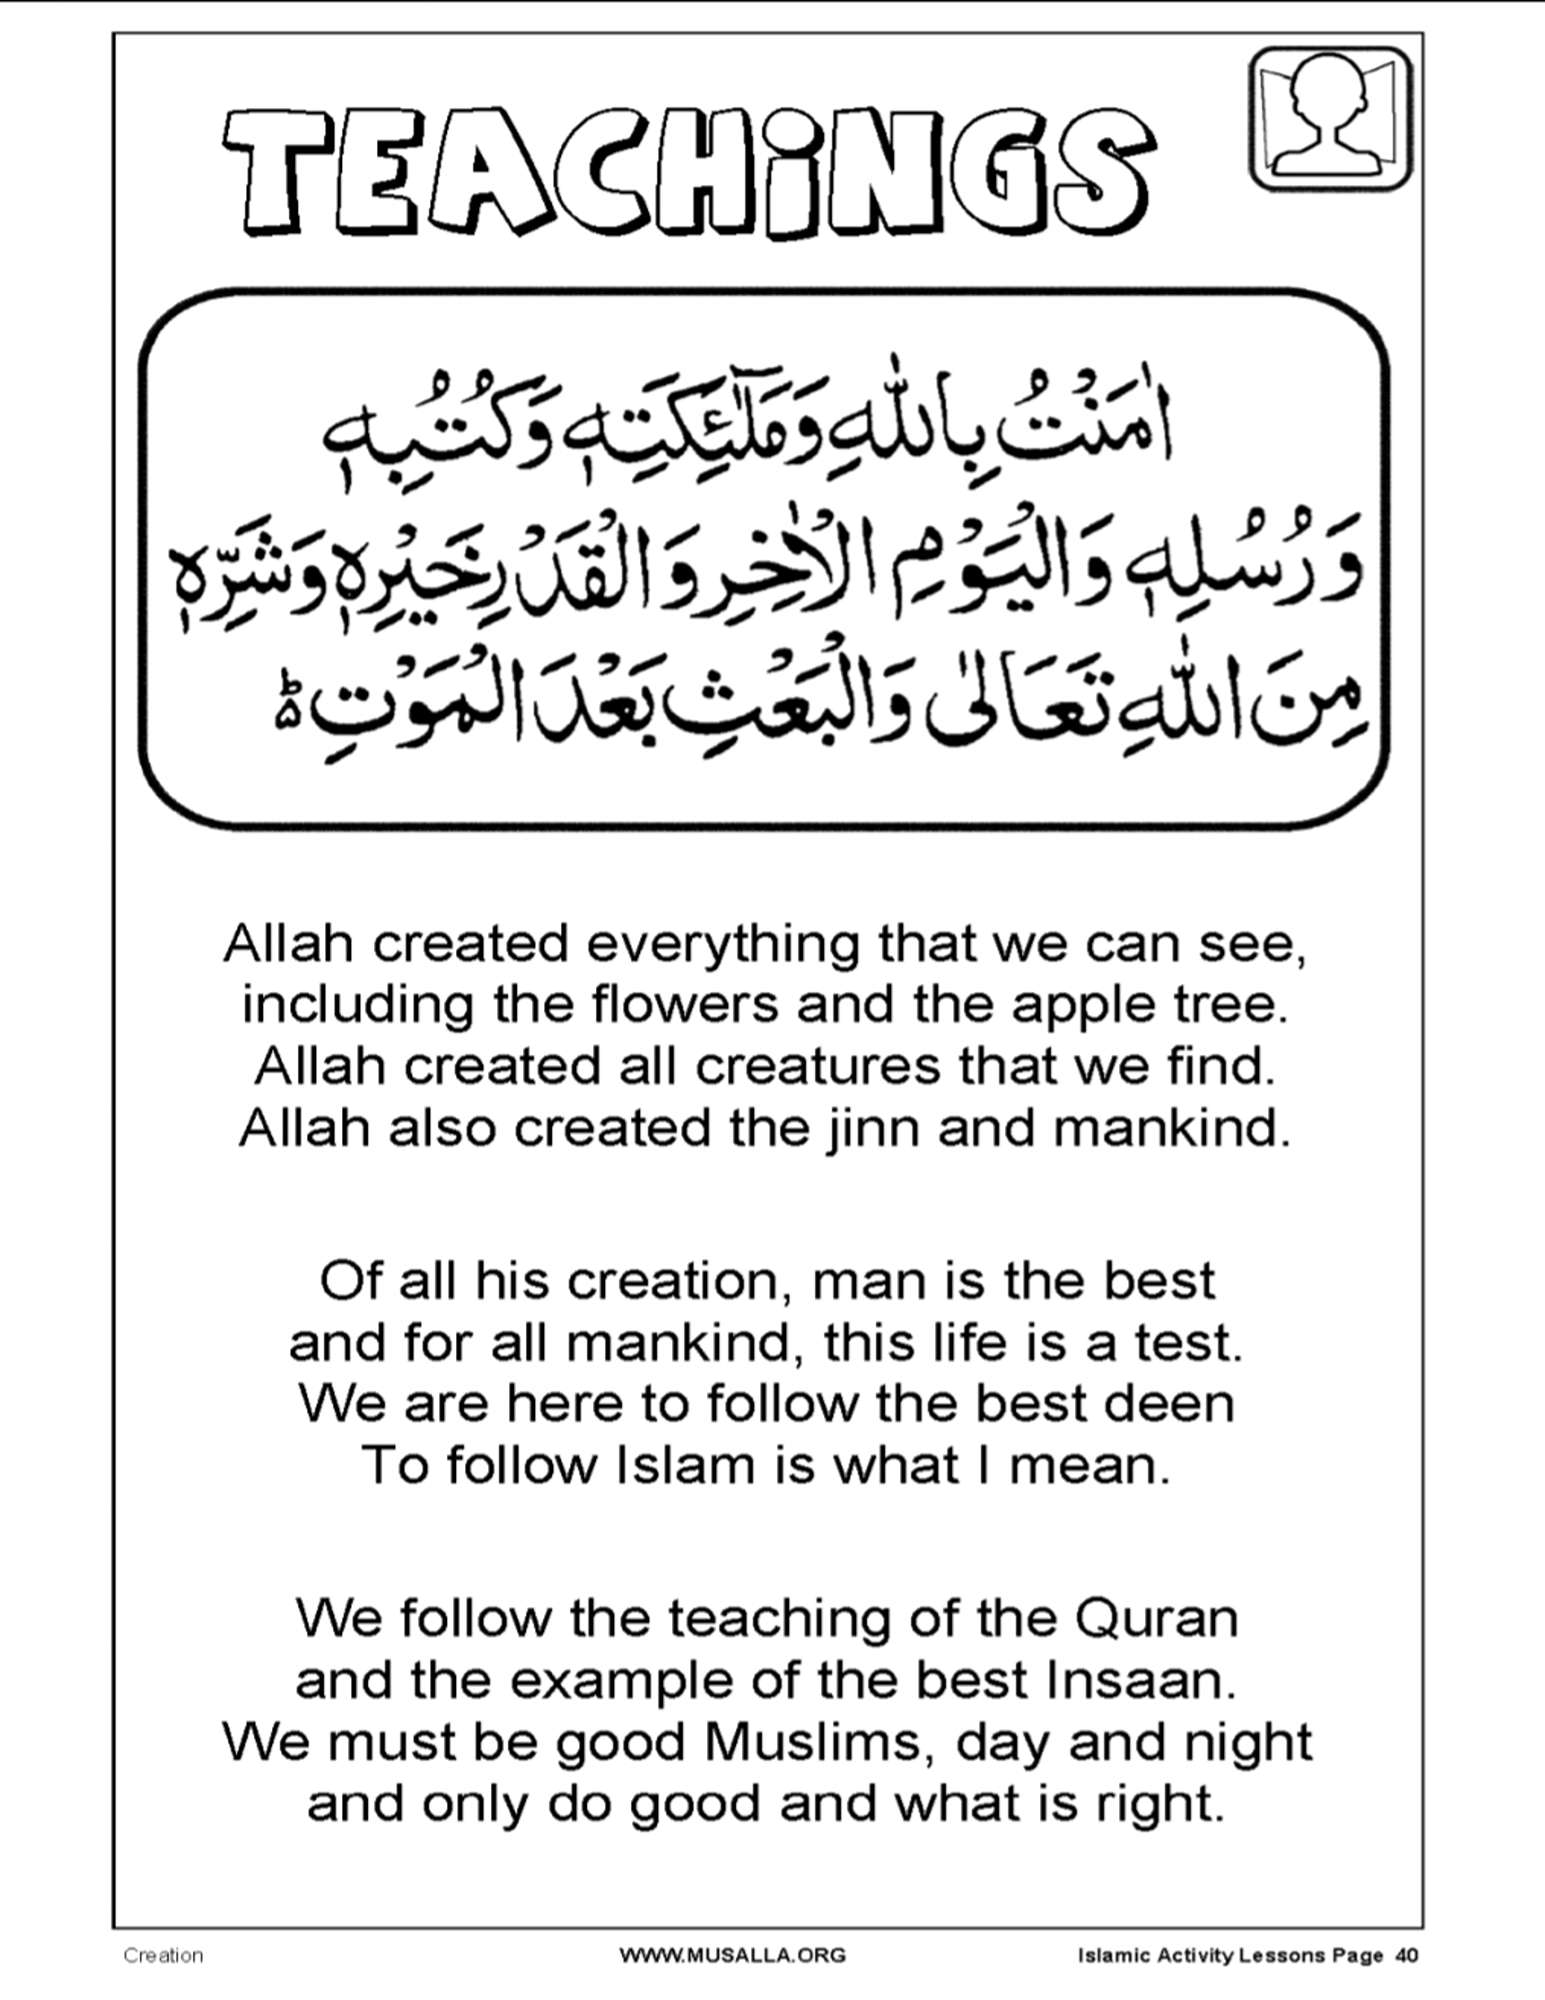 TEACHiNGS
اٰمَنْتُ بِاللّٰهِ وَمَلٰٓئِكَتِهٖ وَكُتُبِهٖ
وَرُسُلِهٖ وَالْيَوْمِ الْاٰخِرِ وَالْقَدْرِ خَيْرِهٖ وَشَرِّهٖ
مِنَ اللّٰهِ تَعَالٰى وَالْبَعْثِ بَعْدَ الْمَوْتِ ؕ
Allah created everything that we can see,
including the flowers and the apple tree.
Allah created all creatures that we find.
Allah also created the jinn and mankind.
Of all his creation, man is the best
and for all mankind, this life is a test.
We are here to follow the best deen
To follow Islam is what I mean.
We follow the teaching of the Quran
and the example of the best Insaan.
We must be good Muslims, day and night
and only do good and what is right.
Creation WWW.MUSALLA.ORG Islamic Activity Lessons Page 40